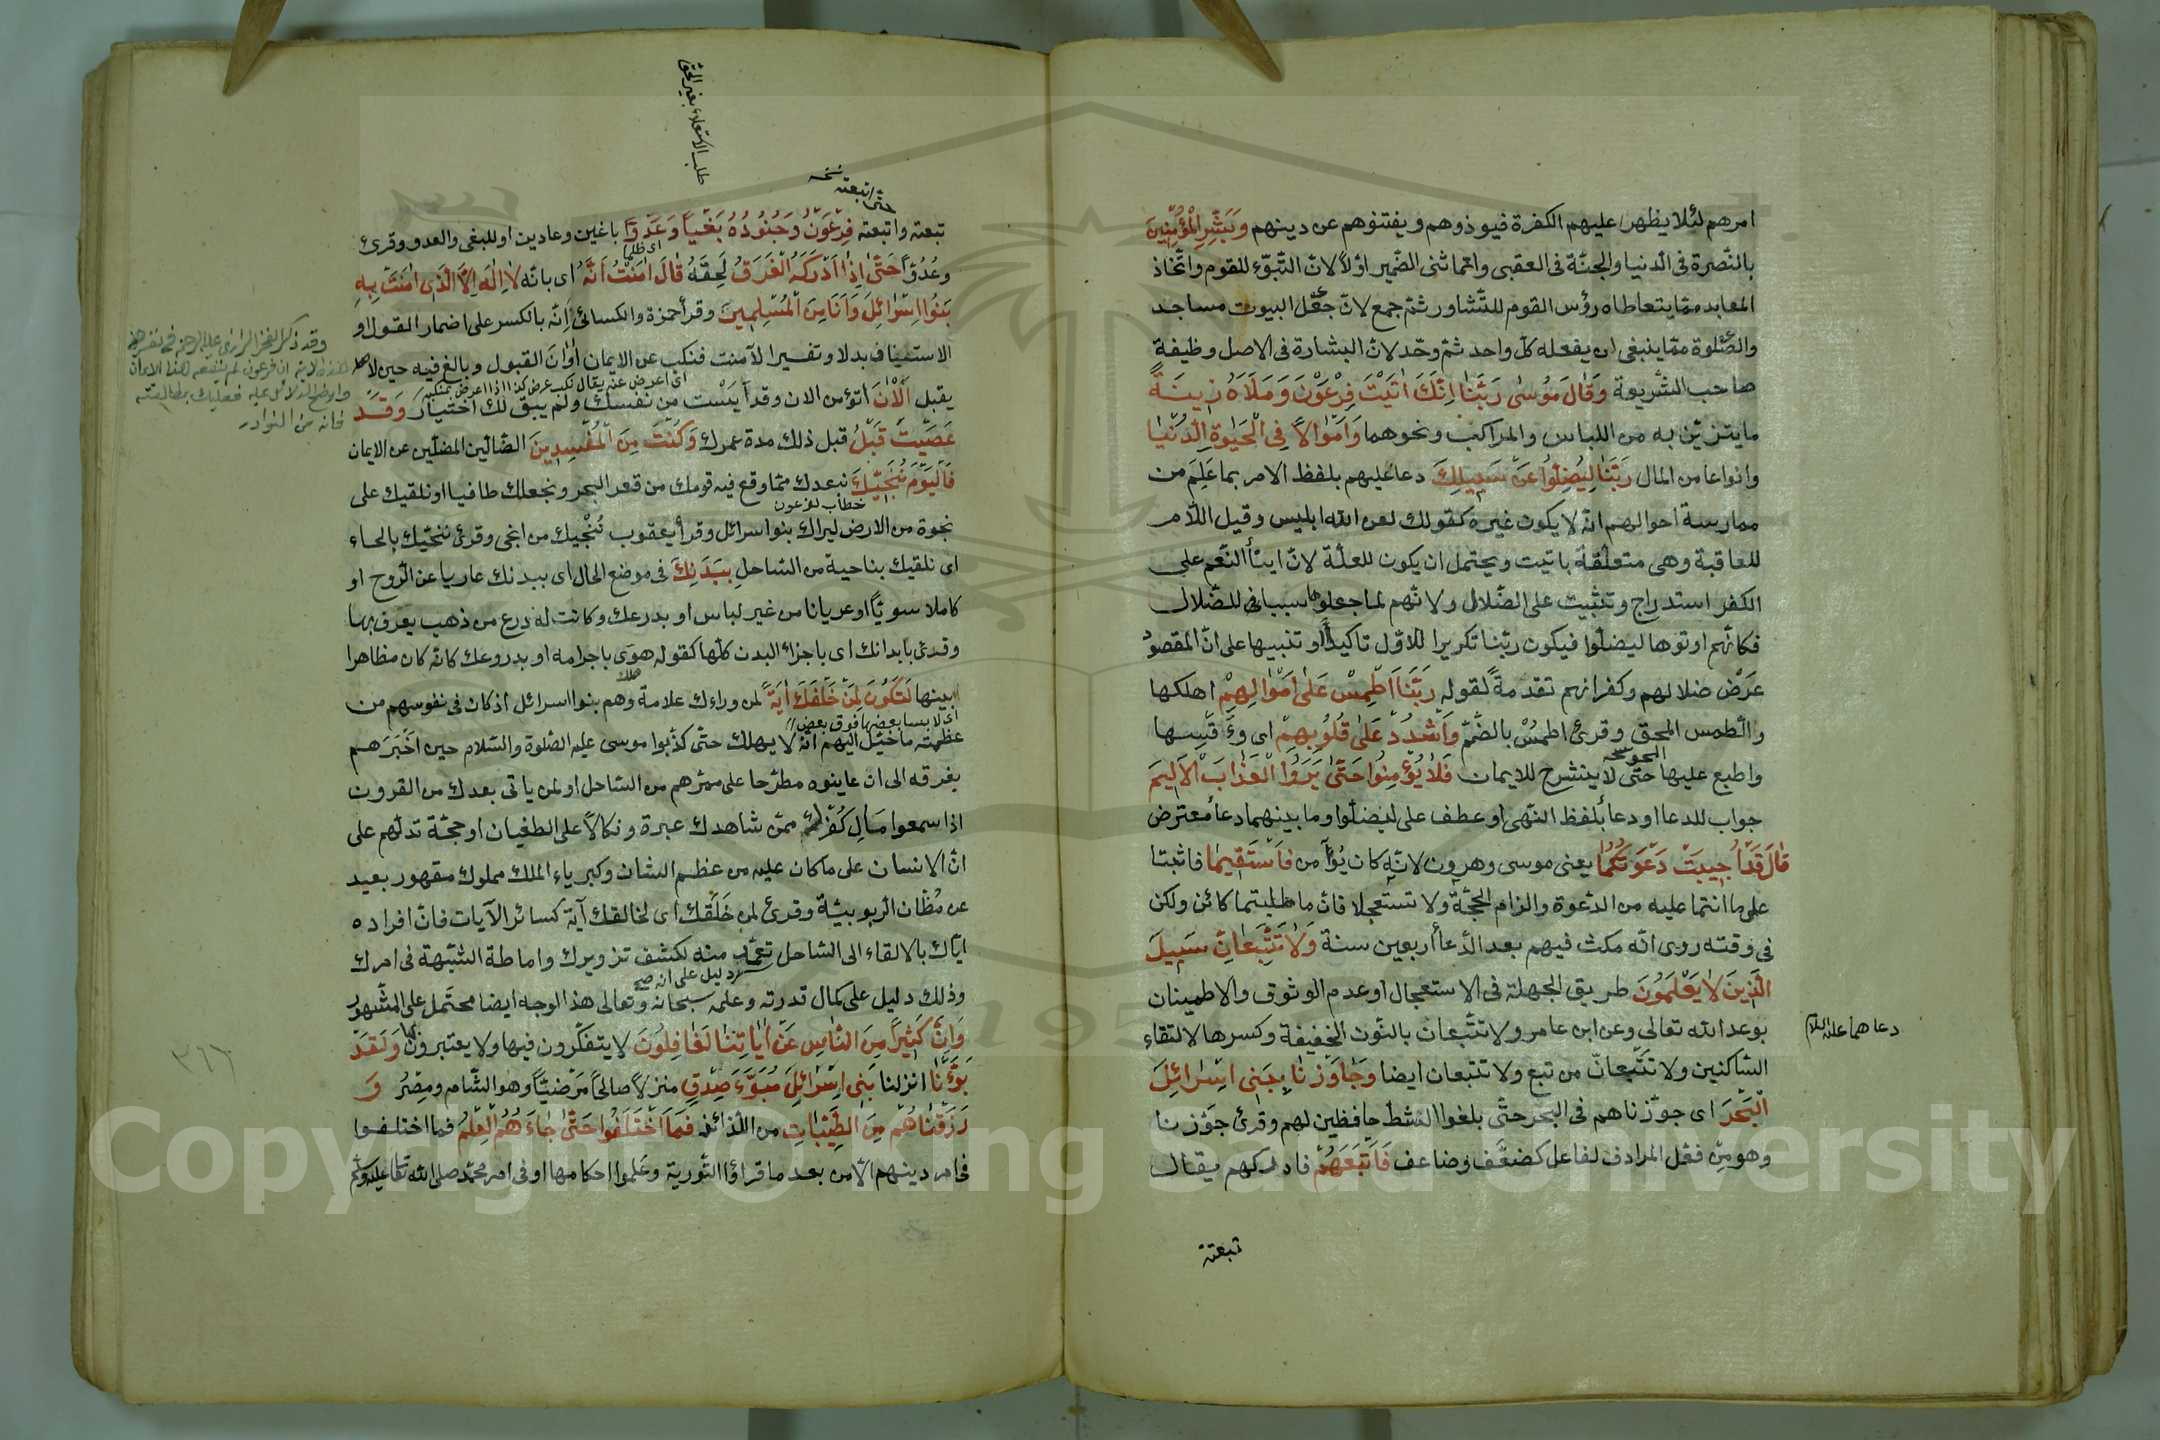 امرهم لئلا يظهر عليهم الكفرة فيوذوهم ويفتنوهم عن دينهم وَبَشِّرِ الْمُؤْمِنِينَ
بالنّصرة فى الدنيا والجنّة فى العقبى وانما ثنى الضّمير اوّلاً لانّ التّبوّء للقوم واتّخاذ
المعابد ممّا يتعاطاه رؤس القوم للتّشاور ثمّ جمع لانّ جعل البيوت مساجد
والصّلوة ممّا ينبغى ان يفعله كلّ واحد ثمّ وحّد لانّ البشارة فى الاصل وظيفة
صاحب الشّريعة وَقَالَ مُوسٰى رَبَّنَا اِنَّكَ اٰتَيْتَ فِرْعَوْنَ وَمَلَاَهُ زِينَةً
ما يتزيّن به من اللباس والمراكب ونحوهما وَاَمْوَالاً فِى الْحَيٰوةِ الدُّنْيَا
وانواعا من المال رَبَّنَا لِيُضِلُّوا عَنْ سَبِيلِكَ دعا عليهم بلفظ الامر بما عَلِمَ من
ممارسة احوالهم انّه لا يكون غيره كقولك لعن الله ابليس وقيل اللّام
للعاقبة وهى متعلّقة باتيت ويحتمل ان يكون للعلّة لانّ ايتأ النّعم على
الكفر استدراج وتثبيت على الضّلال ولانّهم لما جعلوها سببا فى للضّلال
فكانّهم اوتوها ليضلّوا فيكون ربّنا تكريرا للاوّل تاكيداً او تنبيها على انّ المقصود
عَرْض ضلالهم وكفرانهم تقدمةً لقوله رَبَّنَا اطْمِسْ عَلٰى اَمْوَالِهِمْ اهلكها
والطّمس المحق وقرئ اطمُسْ بالضّمّ وَاشْدُدْ عَلٰى قُلُوبِهِمْ اى وَ قَسِّها
المحو نسخه
واطبع عليها حتّى لا ينشرح للايمان فَلَا يُؤْمِنُوا حَتّٰى يَرَوُا الْعَذَابَ الْاَلِيمَ
جواب للدعا او دعا بلفظ النّهى او عطف على ليضلّوا وما بينهما دعأ معترض
قَالَ قَدْ اُجِيبَتْ دَعْوَتُكُمَا يعنى موسى وهرون لانّه كان يؤمّن فَاسْتَقِيمَا فاثبتا
على ما انتما عليه من الدّعوة والزام الحجّة ولا تستعجلا فانّ ما طلبتما كائن ولكن
فى وقته روى انّه مكث فيهم بعد الدّعأ اربعين سنة وَلَا تَتَّبِعَانِّ سَبِيلَ
الَّذِينَ لَا يَعْلَمُونَ طريق الجهلة فى الاستعجال او عدم الوثوق والاطمينان
بوعد الله تعالى وعن ابن عامر ولا تتّبعان بالنّون الخفيفة وكسرها لالتقاء
دعا هما عليه السلام
السّاكنين ولا تتّبعانّ من تبع ولا تتبعان ايضا وَجَاوَزْنَا بِبَنِى اِسْرَائِلَ
الْبَحْرَ اى جوّزناهم فى البحر حتّى بلغوا الشطّ حافظين لهم وقرئ جَوَّزنا
وهو من فعّل المرادف لفاعل كضعّف وضاعف فَاَتْبَعَهُمْ فادركهم يقال
تبعته
طلب الاستعلاء بغير الحق
حتى اتبعته نسخه
تبعته واتبعته فِرْعَوْنُ وَجُنُودُهُ بَغْياً وَعَدْواً باغين وعادين او للبغى والعدو وقرئ
اى ظلما
وعُدُوّاً حَتّٰى اِذَا اَدْرَكَهُ الْغَرَقُ لَحِقَهُ قَالَ اٰمَنْتُ اَنَّهُ اى بانّه لَا اِلٰهَ اِلَّا الَّذِى اٰمَنَتْ بِهِ
بَنُوا اِسْرَائِلَ وَاَنَا مِنَ الْمُسْلِمِينَ وقرأ حمزة والكسائى اِنّه بالكسر على اضمار القول او
وقد ذكر الفخر الرازى عليه الرحمة فى تفسير هذه
الاستيناف بدلا وتفسيرا لآمنت فنكب عن الايمان اَوَانَ القبول وبالغ فيه حين لا
اى اعرض عنه يقال نكب عن كذا اذا اعرض بمنكبه
يقبل اَلْاٰنَ أتؤمن الان وقد أيست من نفسك ولم يبق لك اختيار وَقَدْ
فانه من النوادر
عَصَيْتَ قَبْلُ قبل ذلك مدة عمرك وَكُنْتَ مِنَ الْمُفْسِدِينَ الضّالين المضلّين عن الايمان
فَالْيَوْمَ نُنَجِّيكَ نبعدك ممّا وقع فيه قومك من قعر البحر ونجعلك طافيا او نلقيك على
خطاب لفرعون
نجوة من الارض ليراك بنو اسرائل وقرأ يعقوب نُنْجيك من انجى وقرئ ننحّيك بالحاء
اى نلقيك بناحية من السّاحل بِبَدَنِكَ فى موضع الحال اى ببدنك عاريا عن الرّوح او
كاملا سويّا او عريانا من غير لباس او بدرعك وكانت له درع من ذهب يعرف بها
وقرئ بابدانك اى باجزاء البدن كلّها كقوله هوى باجرامه او بدروعك كانّه كان مظاهرا
بينها لِتَكُونَ لِمَنْ خَلْفَكَ اٰيَةً لمن وراءك علامة وهم بنوا اسرائل اذ كان فى نفوسهم من
اى لابسا بعضها فوق بعض
عظمته ما خيّل اليهم انّه لا يهلك حتّى كذّبوا موسى عليه الصّلوة والسّلام حين اخبرهم
بغرقه الى ان عاينوه مطّرحا على ممرّهم من السّاحل او لمن ياتى بعدك من القرون
اذا سمعوا مآل كفرك ممّن شاهدك عبرة ونكالاً على الطغيان او حجّة تدلّهم على
انّ الانسان على ما كان عليه من عظم الشان وكبرياء الملك مملوك مقهور بعيد
عن مظانّ الربوبيّة وقرئ لمن خَلَقَك اى لخالقك آية كسائر الآيات فانّ افراده
ايّاك بالالقاء الى السّاحل تعمّد منه لكشف تزويرك واماطة الشّبهة فى امرك
دليل على انه صح
وذلك دليل على كمال قدرته وعلمه سبحانه وتعالى هذا الوجه ايضا محتمل على المشهور
وَاِنَّ كَثِيراً مِنَ النَّاسِ عَنْ اٰيَاتِنَا لَغَافِلُونَ لا يتفكّرون فيها ولا يعتبرون بها وَلَقَدْ
٣٦٦
بَوَّأْنَا انزلنا بَنِى اِسْرَائِلَ مُبَوَّءَ صِدْقٍ منزلاً صالحاً مرضيّاً وهو الشّام ومِصرُ وَ
رَزَقْنَاهُمْ مِنَ الطَّيِّبَاتِ من اللذائذ فَمَا اخْتَلَفُوا حَتّٰى جَاءَهُمُ الْعِلْمُ فما اختلفوا
فى امر دينهم الّا من بعد ما قرؤا التّورية وعَلِموا احكامها او فى امر محمّد صلى الله تعالى عليه وسلم
Copyright © King Saud University